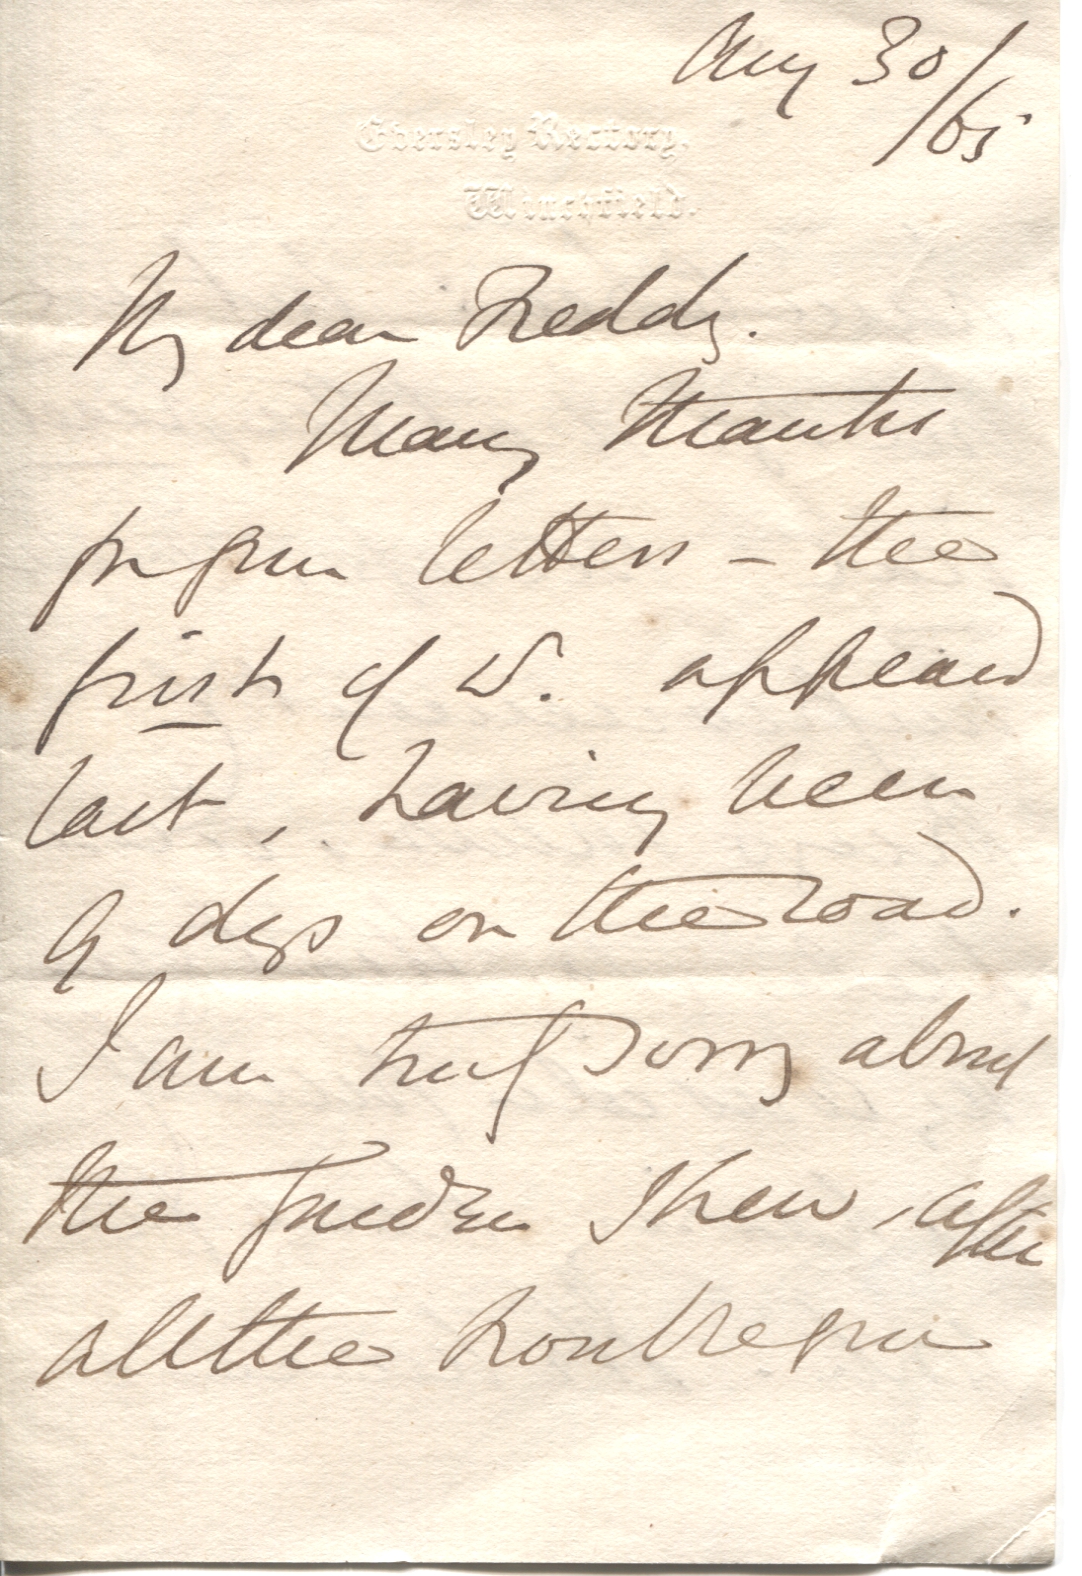 Aug 30/65
Eversley Rectory.
Winchfield.
My dear Freddy.
Many thanks
for your letters – the
first of w. appeared
last, having been
9 days on the road.
I am truly sorry about
the garden shew, after
all the trouble you